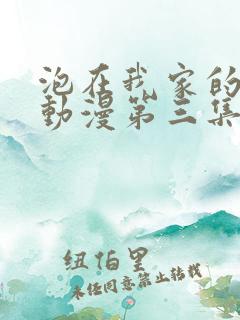 泡在我家的
動漫第三集
纽怕里
未经同意禁止转载